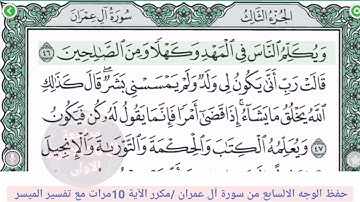 الجزء الثالث
سورة آل عمران
ويكلم الناس في المهد وكهلا ومن الصلحين ٤٦
قالت رب أنى يكون لي ولد ولم يمسسني بشر قال كذلك
الله يخلق ما يشاء إذا قضى أمرا فإنما يقول له كن فيكون
٤٧ ويعلمه الكتب والحكمة والتورىة والإنجيل
حفظ الوجه الالسابع من سورة آل عمران /مكرر الآية 10مرات مع تفسير الميسر